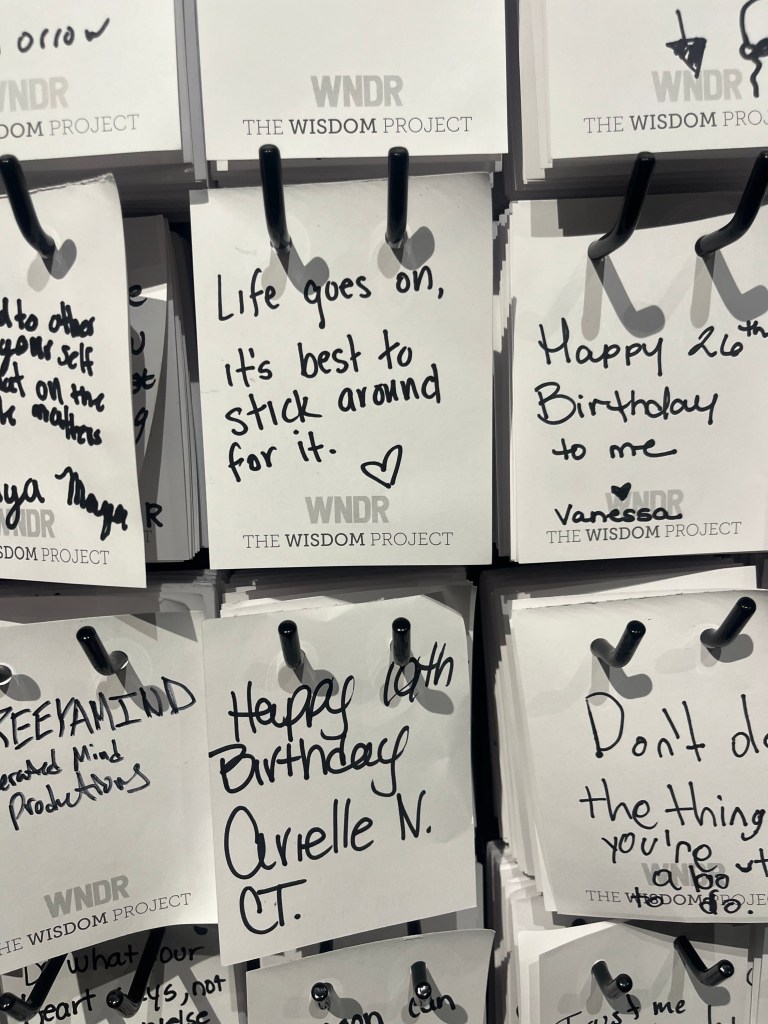 orrow
WNDR
THE WISDOM PROJECT
WNDR
THE WISDOM PROJECT
WNDR
THE WISDOM PROJECT
d to other
yourself
at on the
matters
Maya
WNDR
WISDOM PROJECT
R
Life goes on,
it's best to
stick around
for it. ♡
WNDR
THE WISDOM PROJECT
Happy 26th
Birthday
to me
♥
Vanessa
WNDR
THE WISDOM PROJECT
REEYAMIND
erated Mind
Productions
WNDR
THE WISDOM PROJECT
Happy 19th
Birthday
Arielle N.
CT.
Don't do
the thing
you're
about
to do.
WNDR
THE WISDOM PROJECT
what our
eart says, not
else
can
me